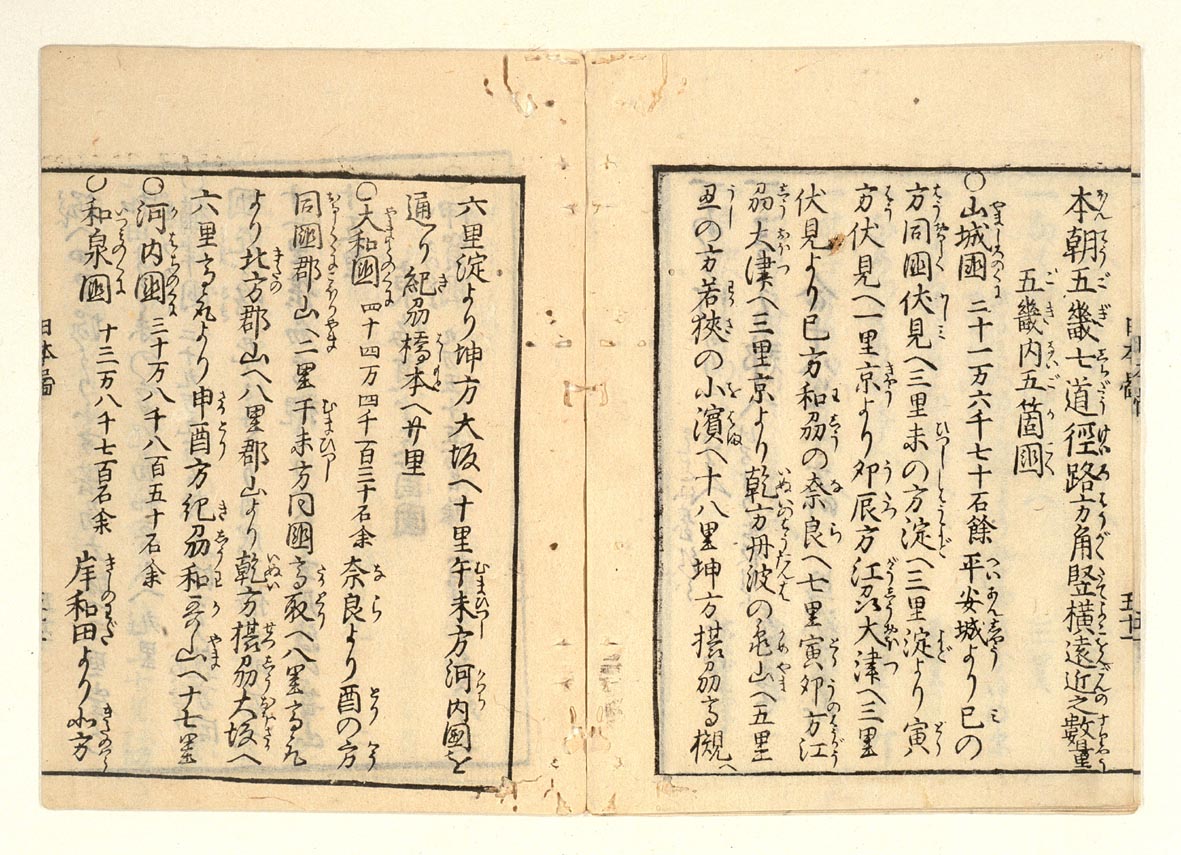 本朝五畿七道徑路方角竪横遠近之數量
五畿内五箇國
○山城國 二十一万六千七十石餘 平安城より巳の
方同國伏見へ三里未の方淀へ三里淀より寅
方伏見へ一里京より卯辰方江刕大津へ三里
伏見より巳方和刕の奈良へ七里寅卯方江
刕大津へ三里京より乾方丹波の亀山へ五里
丑の方若狹の小濱へ十八里坤方摂刕高槻へ
六里淀より坤方大坂へ十里午未方河内國を
通り紀刕橋本へ廿里
○大和國 四十四万四千百三十石余 奈良より酉の方
同國郡山へ二里午未方同國高取へ八里高取
より北方郡山へ八里郡山より乾方摂刕大坂へ
六里高取より申酉方紀刕和哥山へ十七里
○河内國 三十万八千八百五十石余
○和泉國 十三万八千七百石余 岸和田より北方